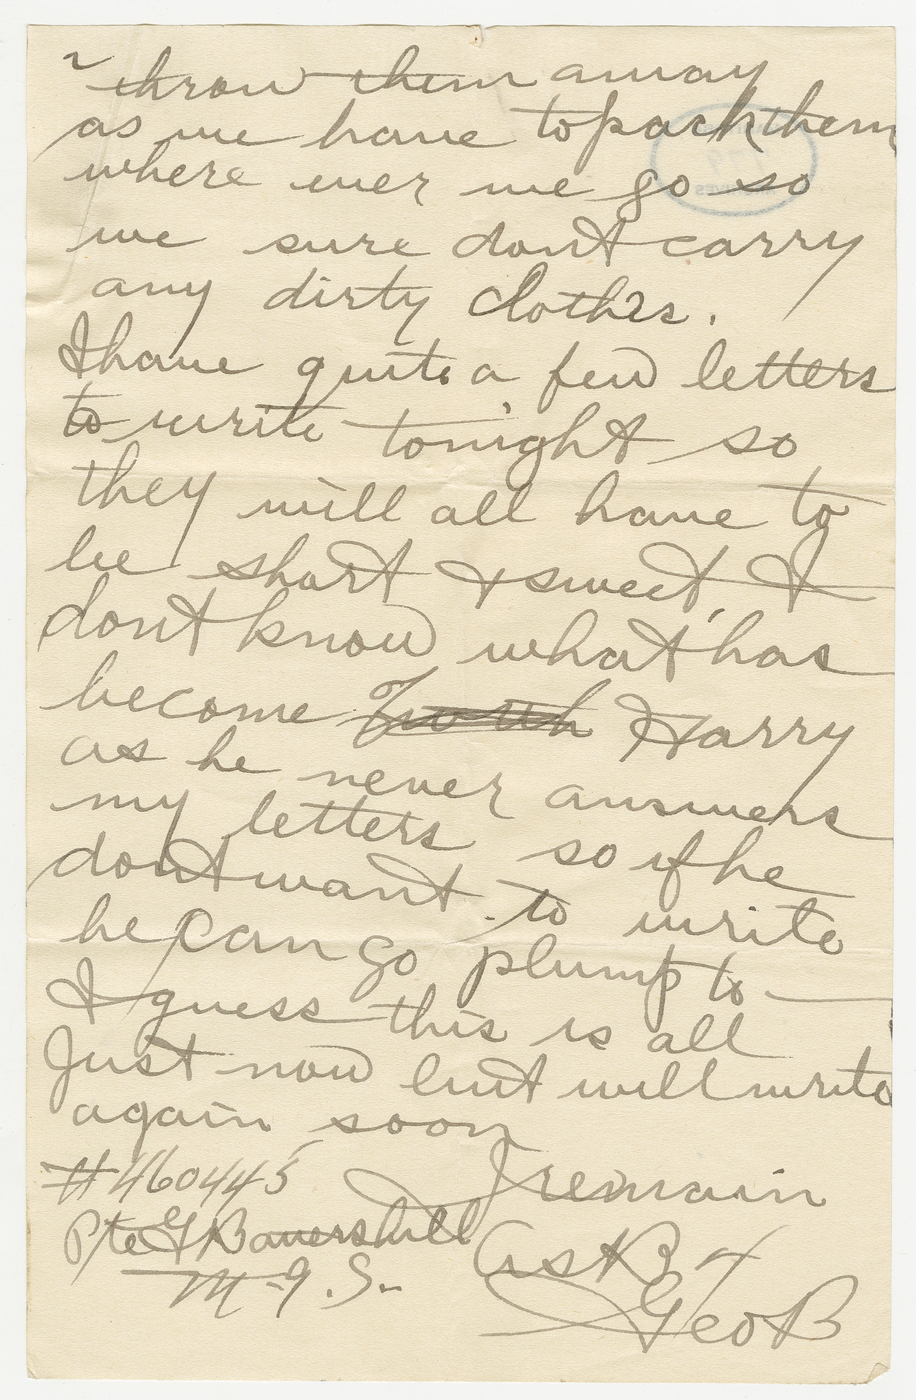 throw them away
as we have to pack them
where ever we go so
we sure dont carry
any dirty clothes.
I have quite a few letters
to write tonight so
they will all have to
be short & sweet, I
dont know what has
become Harry
as he never answers
my letters so if he
dont want to write
he can go plump to —
I guess this is all
Just now but will write
again soon
I remain
#460445
Pte G Bowershill
M.G.S.
As B 4
Geo B